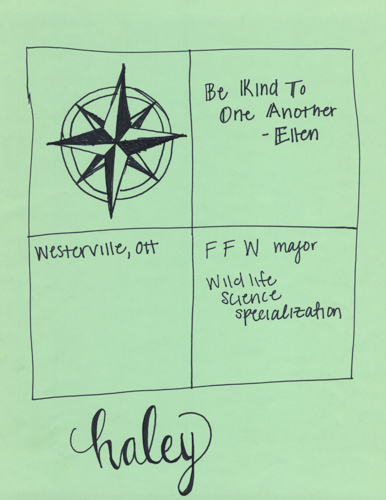 Be Kind To
One Another
- Ellen
Westerville, OH
FFW major
Wildlife
science
specialization
haley